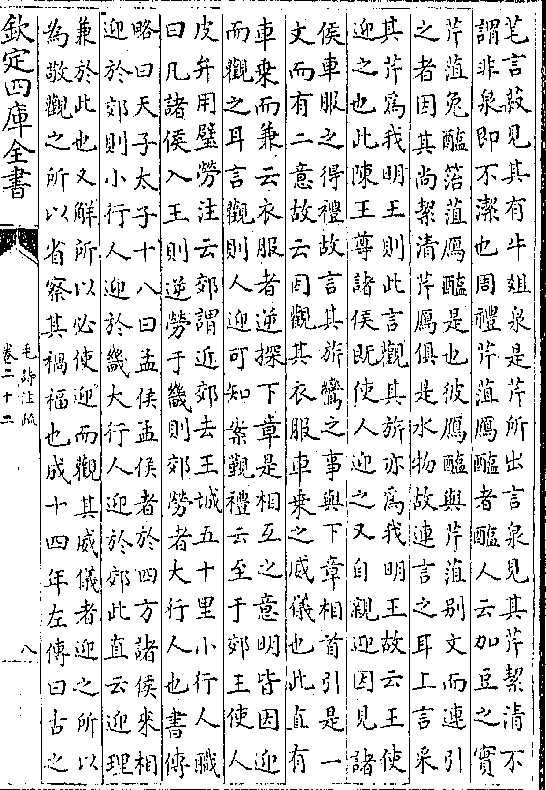 芼言菽見其有牛俎泉是芹所出言泉見其芹絜清不
謂非泉即不潔也周禮芹菹鴈醢者醢人云加豆之實
芹菹兔醢箔菹鴈醢是也彼鴈醢與芹菹别文而連引
之者因其尚絜清芹鴈俱是水物故連言之耳上言采
其芹爲我明王則此言觀其旂亦爲我明王故云王使
迎之也此陳王尊諸侯既使人迎之又自親迎因見諸
侯車服之得禮故言其旂鸞之事與下章相首引是一
文而有二意故云因觀其衣服車乗之威儀也此直有
車乗而兼云衣服者逆探下章是相互之意明皆因迎
而觀之耳言觀則人迎可知案覲禮云至于郊王使人
皮弁用璧勞注云郊謂近郊去王城五十里小行人職
曰凡諸侯入王則逆勞于畿則郊勞者大行人也書傳
略曰天子太子十八曰孟侯孟侯者於四方諸侯來相
迎於郊則小行人迎於畿大行人迎於郊此直云迎理
兼於此也又解所以必使迎而觀其威儀者迎之所以
為敬觀之所以省察其禍福也成十四年左傳曰古之
欽定四庫全書
毛詩注疏
卷二十二
八